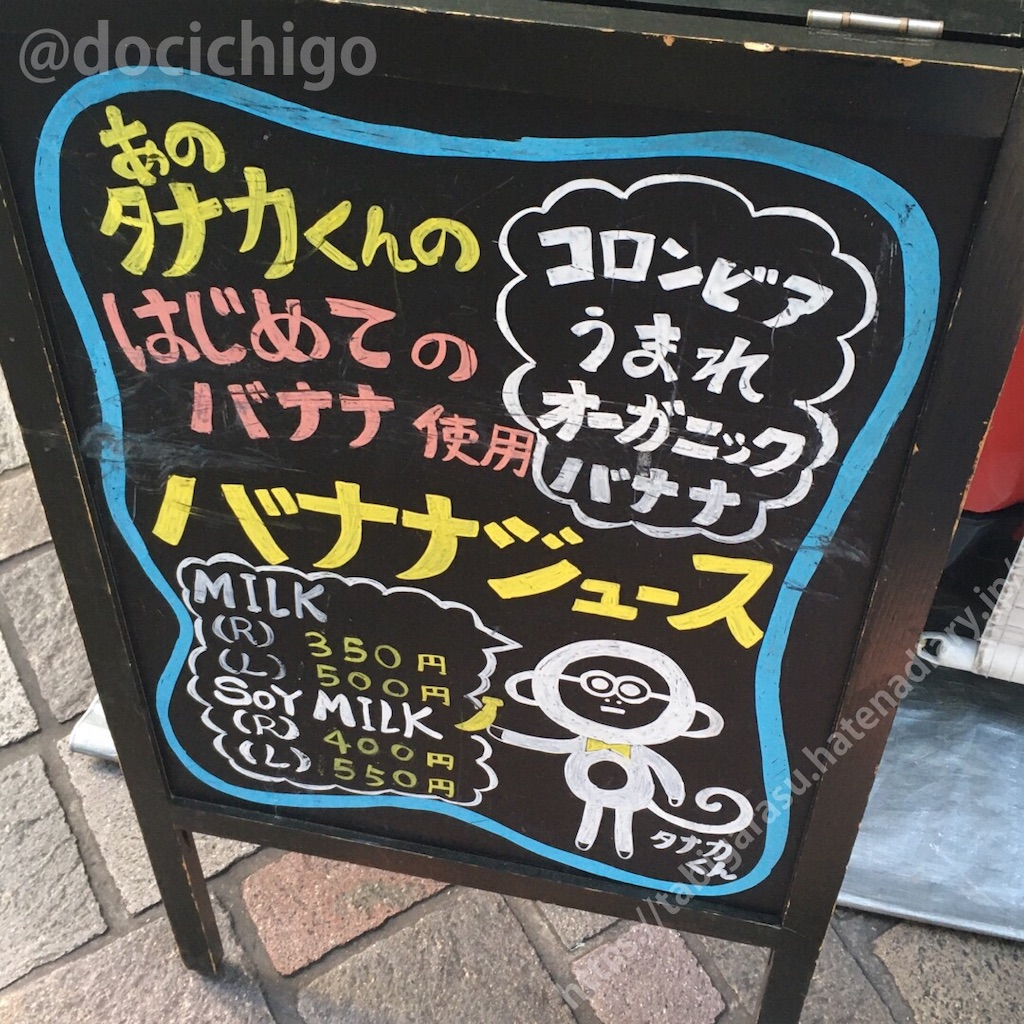 @docichigo
あの
タナカくんの
はじめての
バナナ 使用
コロンビア
うまれ
オーガニック
バナナ
バナナジュース
MILK
(R) 350円
(L) 500円
SOY MILK
(R) 400円
(L) 550円
タナカ
くん